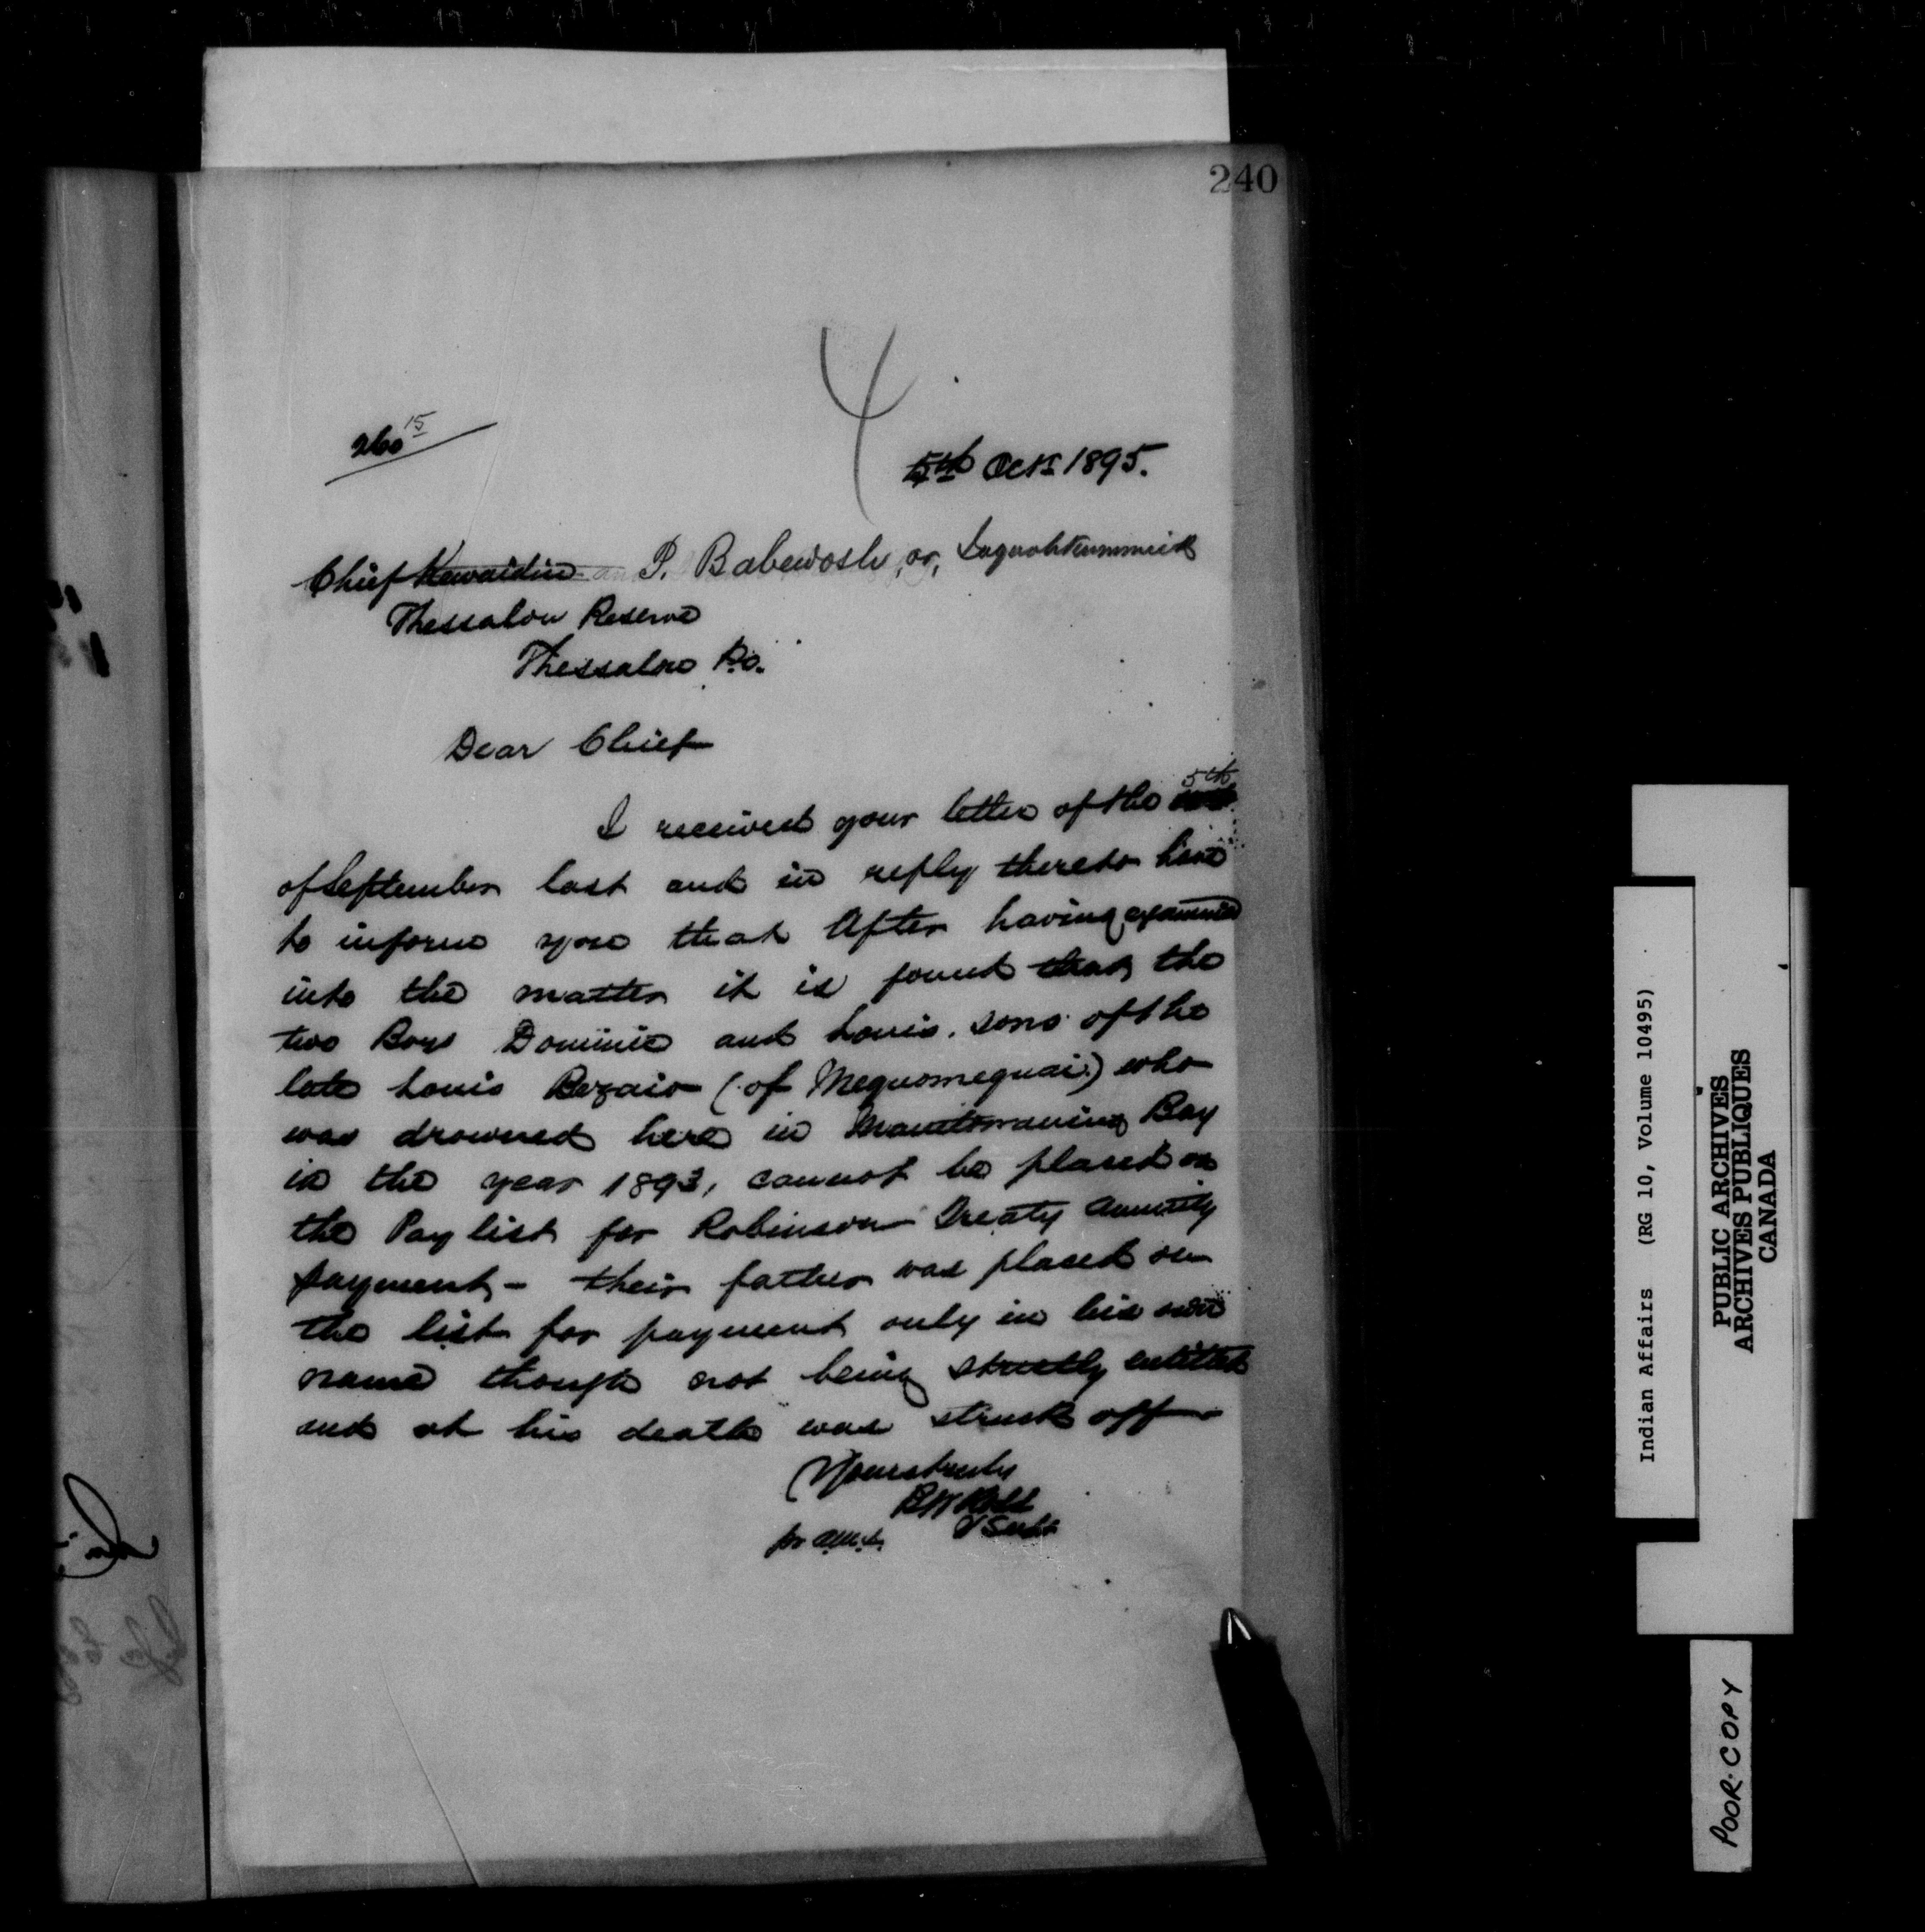 240
4
260 15
5th Oct 1895.
Chief Kewaidin P. Babewosh, or,
Thessalon Reserve
Thessalon P.O.
Dear Chief
I received your letter of the 5th
of September last and in reply thereto have
to inform you that After having examined
into the matter it is found that the
two Boys Dominic and Louis. sons of the
late Louis (of Meguomeguai) who
was drowned here in Manitowaning Bay
in the year 1893, cannot be placed on
the Pay list for Robinson Treaty Annuity
payment - their father was placed on
the list for payment only in his own
name though not being strictly entitled
and at his death was struck off
Yours truly
V Supt
Indian Affairs (RG 10, Volume 10495)
PUBLIC ARCHIVES
ARCHIVES PUBLIQUES
CANADA
POOR COPY